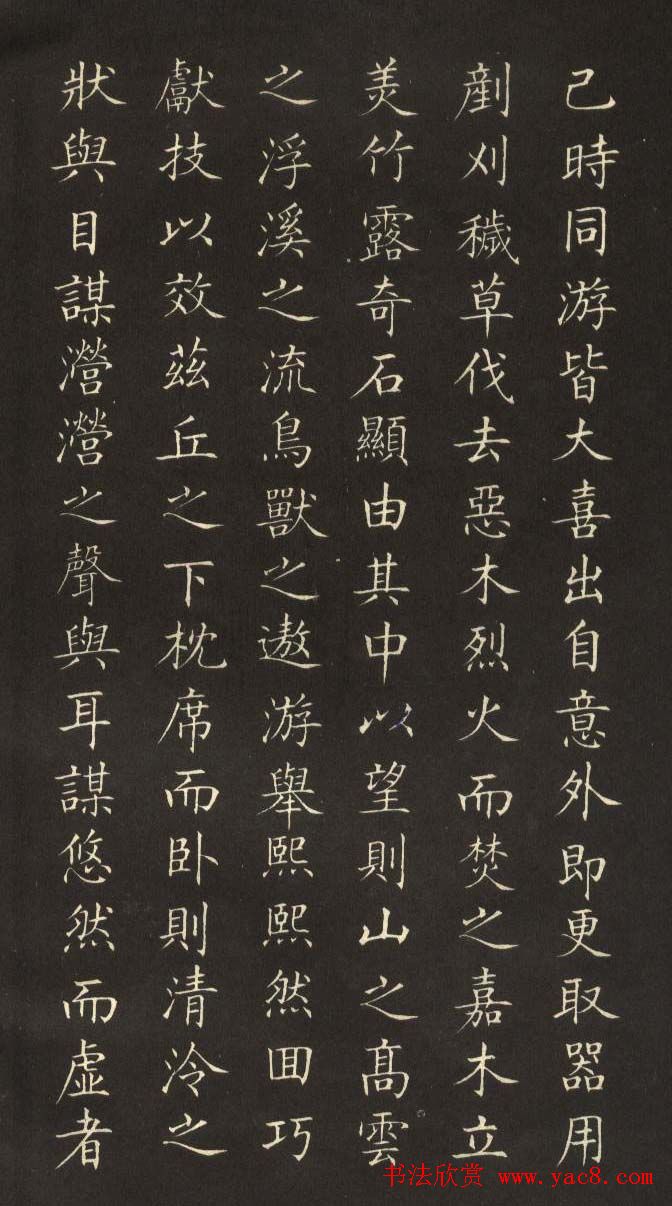 己時同游皆大喜出自意外即更取器用
剷刈穢草伐去惡木烈火而焚之嘉木立
美竹露奇石顯由其中以望則山之高雲
之浮溪之流鳥獸之遨游舉熙熙然囬巧
獻技以效茲丘之下枕席而卧則清泠之
狀與目謀瀯瀯之聲與耳謀悠然而虛者
书法欣赏 www.yac8.com